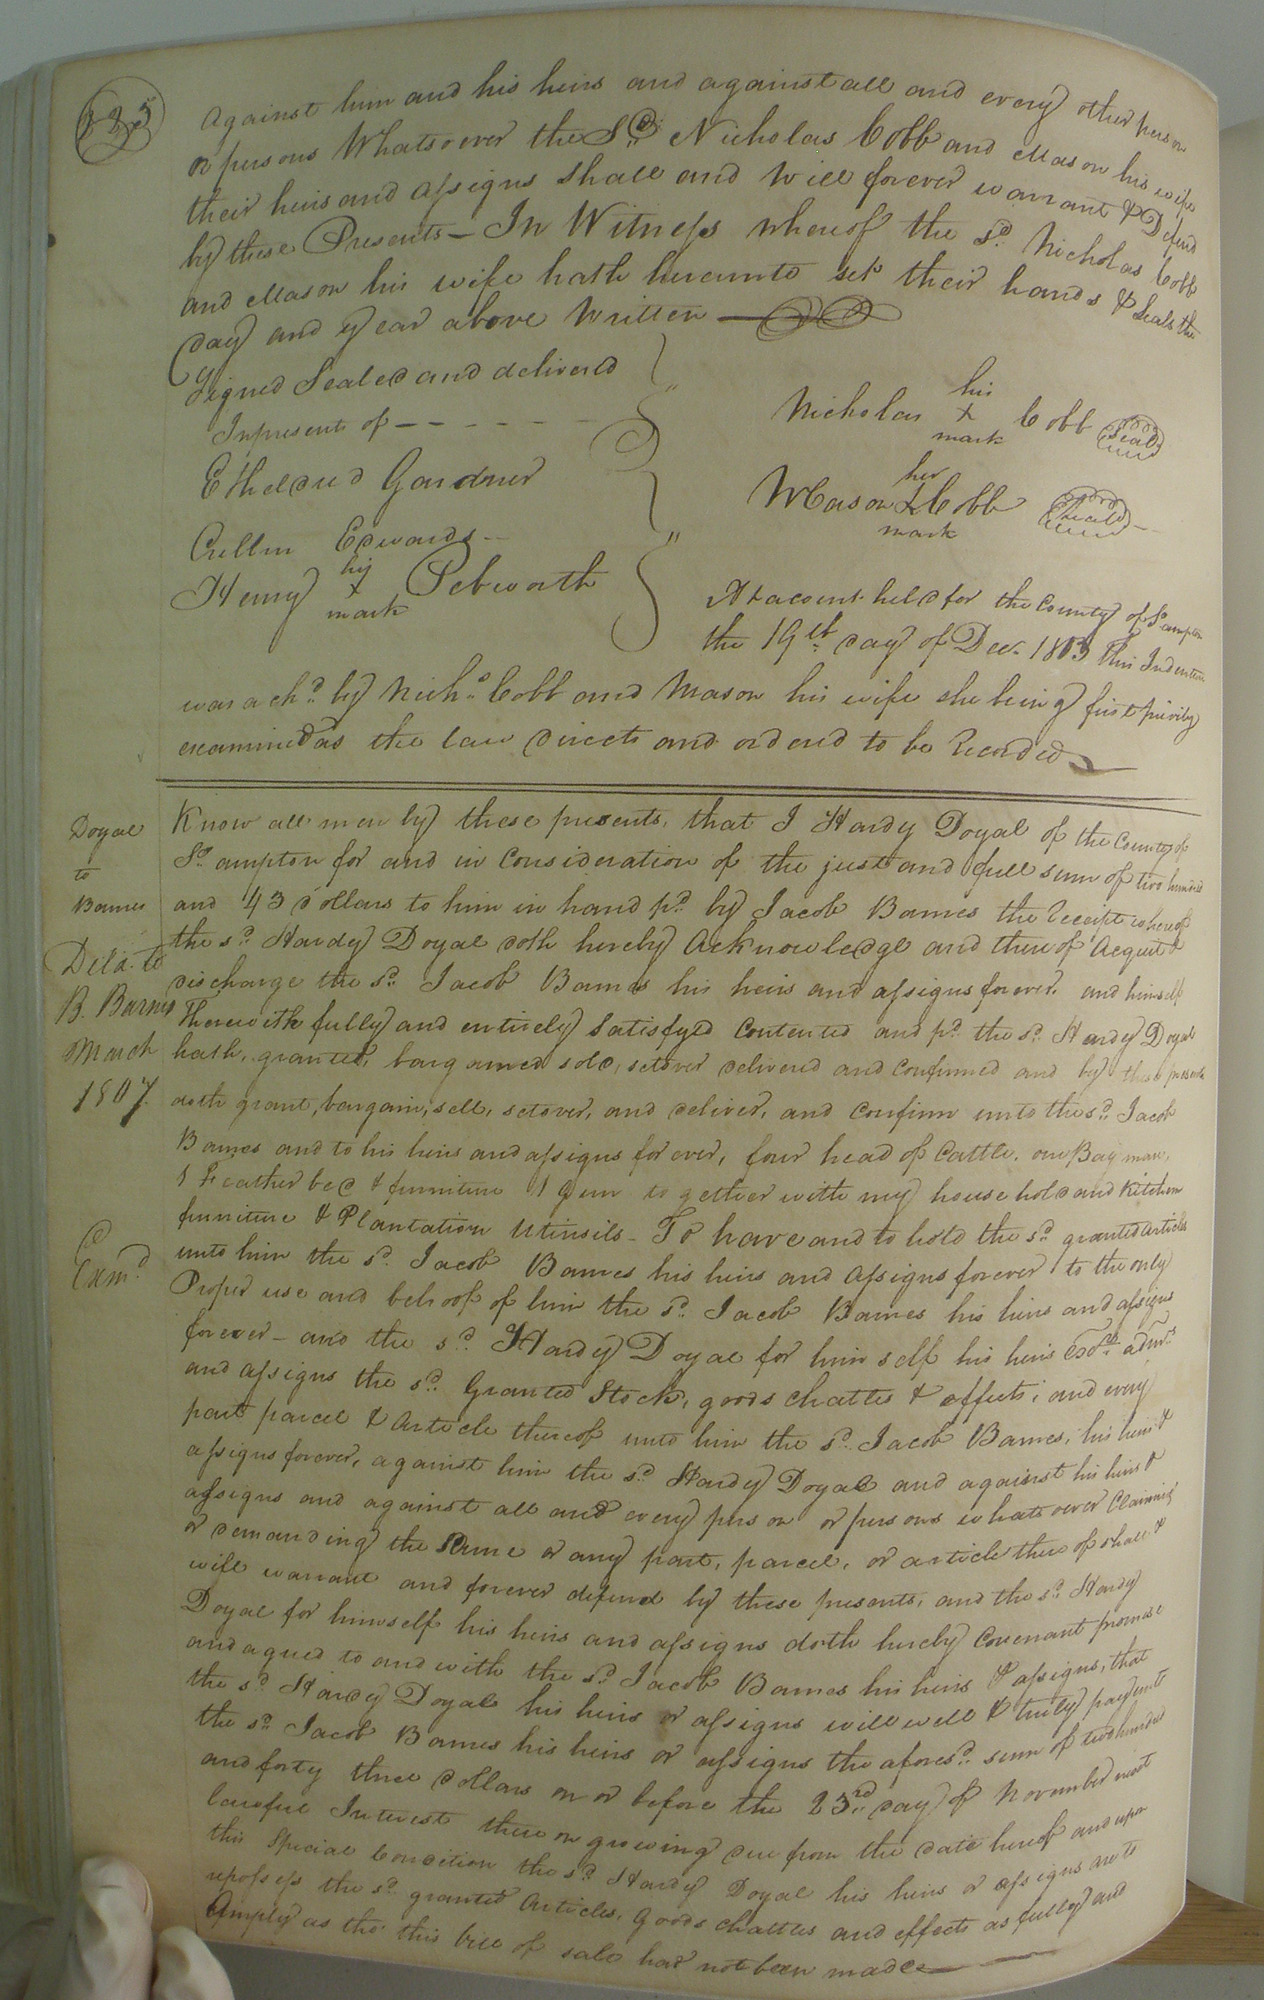 225
against him and his heirs and against all and every other person
or persons Whatsoever the Sd. Nicholas Cobb and Mason his wife
their heirs and assigns shall and will forever warrant & Defend
by these Presents - In Witness whereof the sd. Nicholas Cobb
and Mason his wife hath hereunto set their hands & seals the
day and year above Written
Signed Sealed and delivered
Inpresents of - - - - -
Etheldred Gardner
Cullin Edwards
Henry his x mark Pebworth
Nicholas his x mark Cobb Seal
Mason her x mark Cobb Seal
At a court held for the County of So.ampton
the 19th. day of Decr. 1803 This Indenture
was ackd. by Nichs. Cobb and Mason his wife she being first privily
examined as the law directs and ordered to be Recorded
Doyal
to
Barnes
Deld. to
B. Barnes
March
1807.
Exmd.
Know all men by these presents, that I Hardy Doyal of the County of
So.ampton for and in Consideration of the just and full sum of two hundred
and 43 dollars to him in hand pd. by Jacob Barnes the Receipt whereof
the sd. Hardy Doyal doth hereby Acknowledge and thereof Acquit &
discharge the sd. Jacob Barnes his heirs and assigns forever. and himself
Therewith fully and entirely Satisfyed Contented and pd. the sd. Hardy Doyal
hath, granted, bargained sold, setover delivered and Confirmed and by these presents
doth grant, bargain, sell, setover, and deliver, and Confirm unto the sd. Jacob
Barnes and to his heirs and assigns for ever, four head of Cattle. one Bay mare,
1 Feather bed & furniture 1 Gun together with my house hold and Kitchen
furniture & Plantation Utinsils - To have and to hold the sd. granted articles
unto him the sd. Jacob Barnes his heirs and Assigns forever to the only
Proper use and behoof of him the sd. Jacob Barnes his heirs and assigns
forever - and the sd. Hardy Doyal for him self his heirs Exors. admrs.
and assigns the sd. Granted Stock, goods chattles & effects; and every
part parcel & Article thereof unto him the sd. Jacob Barnes, his heirs &
assigns forever, against him the sd. Hardy Doyal and against his heirs &
assigns and against all and every person or persons whatsoever Claiming
or demanding the Same or any part, parcel, or article thereof shall &
will warrant and forever defend by these presents, and the sd. Hardy
Doyal for himself his heirs and assigns doth hereby Covenant promise
and agree to and with the sd. Jacob Barnes his heirs & assigns, that
the sd. Hardy Doyal his heirs or assigns will well & truly pay unto
the sd. Jacob Barnes his heirs or assigns the aforesd. sum of two hundred
and forty three dollars on or before the 23rd. day of November next
lawfull Interest there on growing due from the date hereof and upon
this Special Condition the sd. Hardy Doyal his heirs or assigns are to
repossess the sd. granted Articles, Goods chattles and effects as fully and
Amply as tho' this bill of sale had not been made